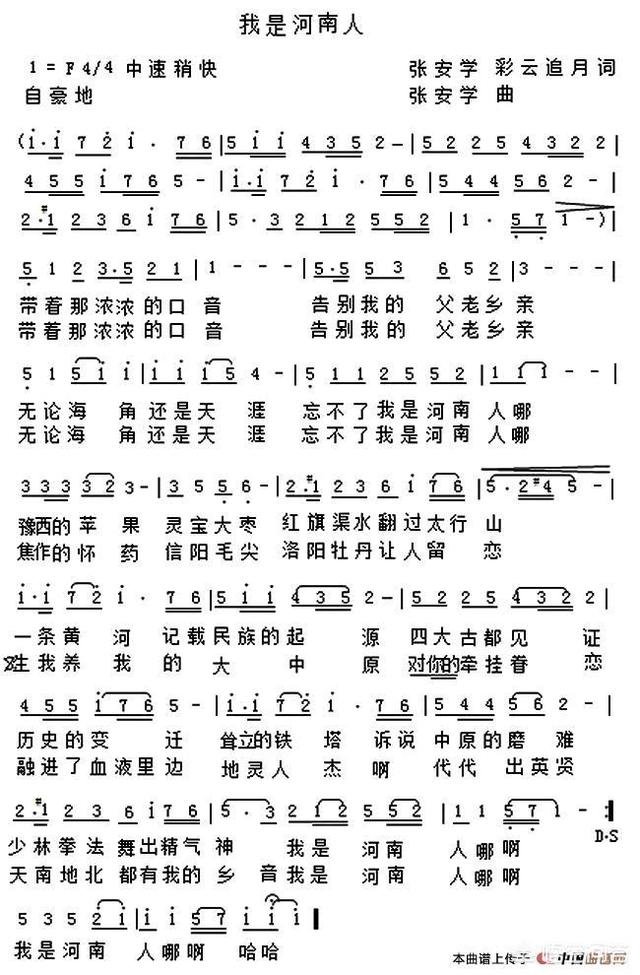 我是河南人
1=F 4/4 中速稍快 张安学 彩云追月词
自豪地 张安学 曲
(i·i 7 2 i · 76|5 i i 4 3 5 2 -|5 2 2 5 4 3 2 2|
4 5 5 i 7 6 5 -|i·i 7 2 i · 76|5 4 4 5 6 2 -|
2·#1 2 3 6 i 76|5 · 3 2 1 2 5 5 2|1 · 5 7 1 -)|
5 1 2 3·5 2 1|1 - - -|5·5 5 3 6 5 2|3 - - -|
带着那浓浓的口音 告别我的 父老乡亲
带着那浓浓的口音 告别我的 父老乡亲
5 1 5 i i|i i i 5 4 -|5 1 1 2 5 5 2|1 1 1 - -|
无论海 角还是天 涯 忘不了我是河南 人哪
无论海 角还是天 涯 忘不了我是河南 人哪
3 3 3 3 2 3 -|3 5 5 6 -|2·#1 2 3 6 i 76|5·2#4 5 -|
豫西的苹果 灵宝大枣 红旗渠水翻过太行山
焦作的怀药 信阳毛尖 洛阳牡丹让人留 恋
i·i 7 2 i · 76|5 i i 4 3 5 2 -|5 2 2 5 4 3 2 2|
一条黄 河 记载民族的起 源 四大古都见 证
生我养 我 的 大 中 原 对你的牵挂眷 恋
4 5 5 i 7 6 5 -|i·i 7 2 i · 76|5 4 4 5 6 2 -|
历史的变 迁 耸立的铁 塔 诉说 中原的磨 难
融进了血液里边 地灵人 杰 啊 代代 出英贤
2·#1 2 3 6 i 76|5 · 3 2 1 2 5 5 2|1 1 5 7 1 - :|
D·S
少林拳法 舞出精气神 我是 河南 人哪啊
天南地北 都有我的 乡 音我是 河南 人哪啊
5 3 5 2 i|i i 5 7 i i -|
我是河南 人哪啊 哈哈
本曲谱上传于 中国曲谱网